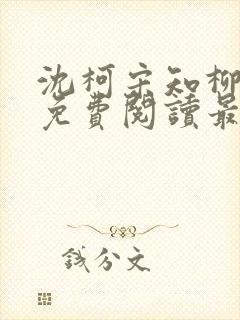 沈柯宋知柳
免費閱讀最
錢分文